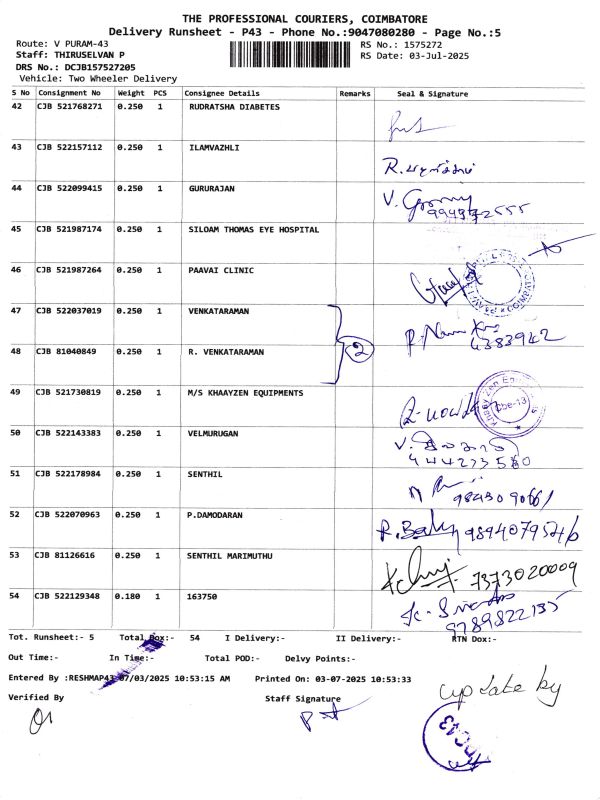 THE PROFESSIONAL COURIERS, COIMBATORE
Delivery Runsheet - P43 - Phone No.:9047080280 - Page No.:5
Route: V PURAM-43 RS No.: 1575272
Staff: THIRUSELVAN P RS Date: 03-Jul-2025
DRS No.: DCJB157527205
Vehicle: Two Wheeler Delivery
S No Consignment No Weight PCS Consignee Details Remarks Seal & Signature
42 CJB 521768271 0.250 1 RUDRATSHA DIABETES
43 CJB 522157112 0.250 1 ILAMVAZHLI
R.
44 CJB 522099415 0.250 1 GURURAJAN
V.
45 CJB 521987174 0.250 1 SILOAM THOMAS EYE HOSPITAL
46 CJB 521987264 0.250 1 PAAVAI CLINIC
47 CJB 522037019 0.250 1 VENKATARAMAN
2
4383942
48 CJB 81040849 0.250 1 R. VENKATARAMAN
49 CJB 521730819 0.250 1 M/S KHAAYZEN EQUIPMENTS
Cbe-13
50 CJB 522143383 0.250 1 VELMURUGAN
V.
51 CJB 522178984 0.250 1 SENTHIL
52 CJB 522070963 0.250 1 P.DAMODARAN
53 CJB 81126616 0.250 1 SENTHIL MARIMUTHU
7373020009
54 CJB 522129348 0.180 1 163750
9789822135
Tot. Runsheet:- 5 Total Box:- 54 I Delivery:- II Delivery:- RTN Dox:-
Out Time:- In Time:- Total POD:- Delvy Points:-
Entered By :RESHMAP43 07/03/2025 10:53:15 AM Printed On: 03-07-2025 10:53:33
Verified By Staff Signature
update by